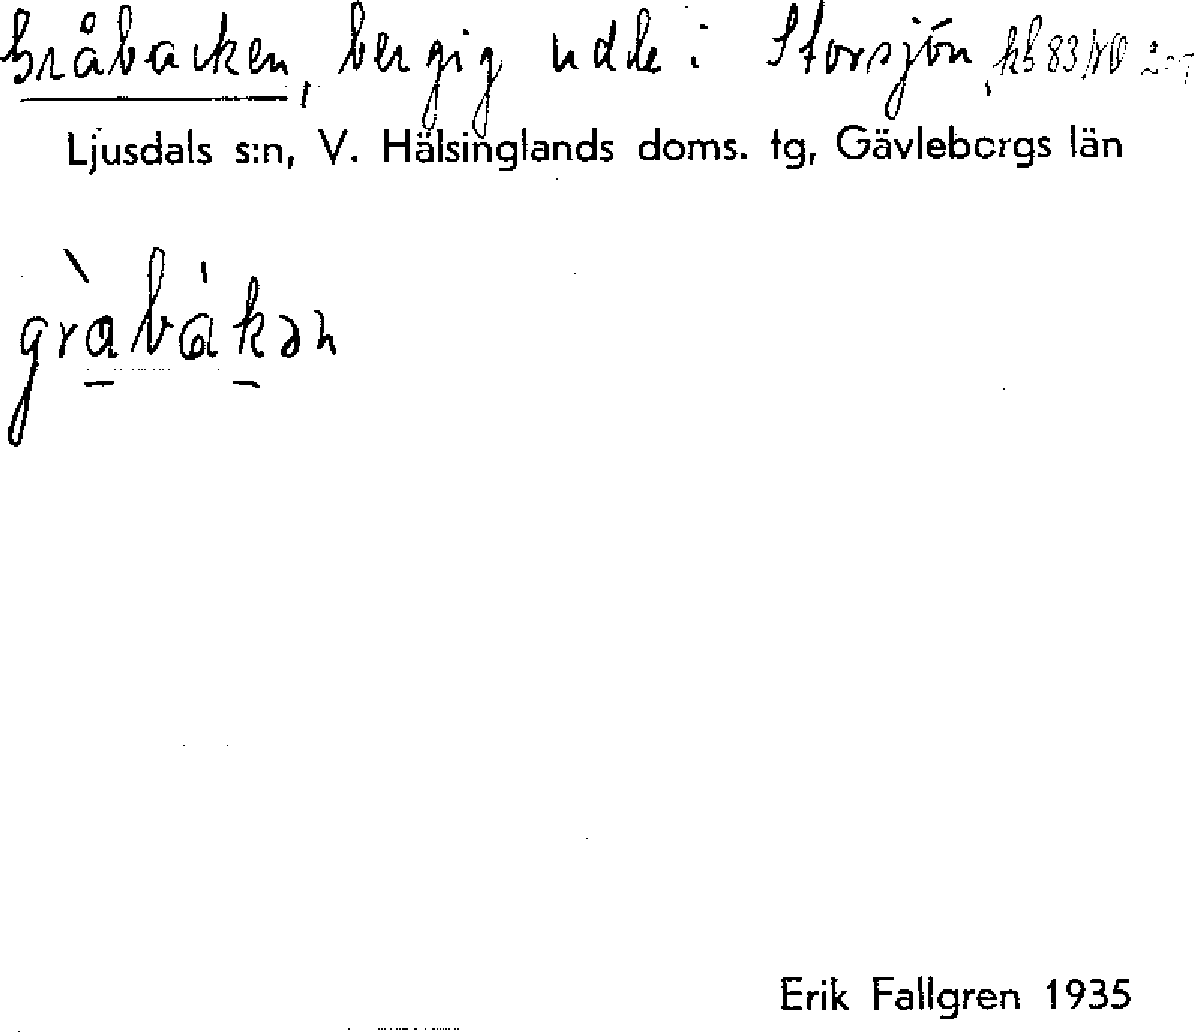 Gråbacken, bergig udde i Storsjön,
Ljusdals s:n, V. Hälsinglands doms. tg, Gävleborgs län
gràbákən
Erik Fallgren 1935